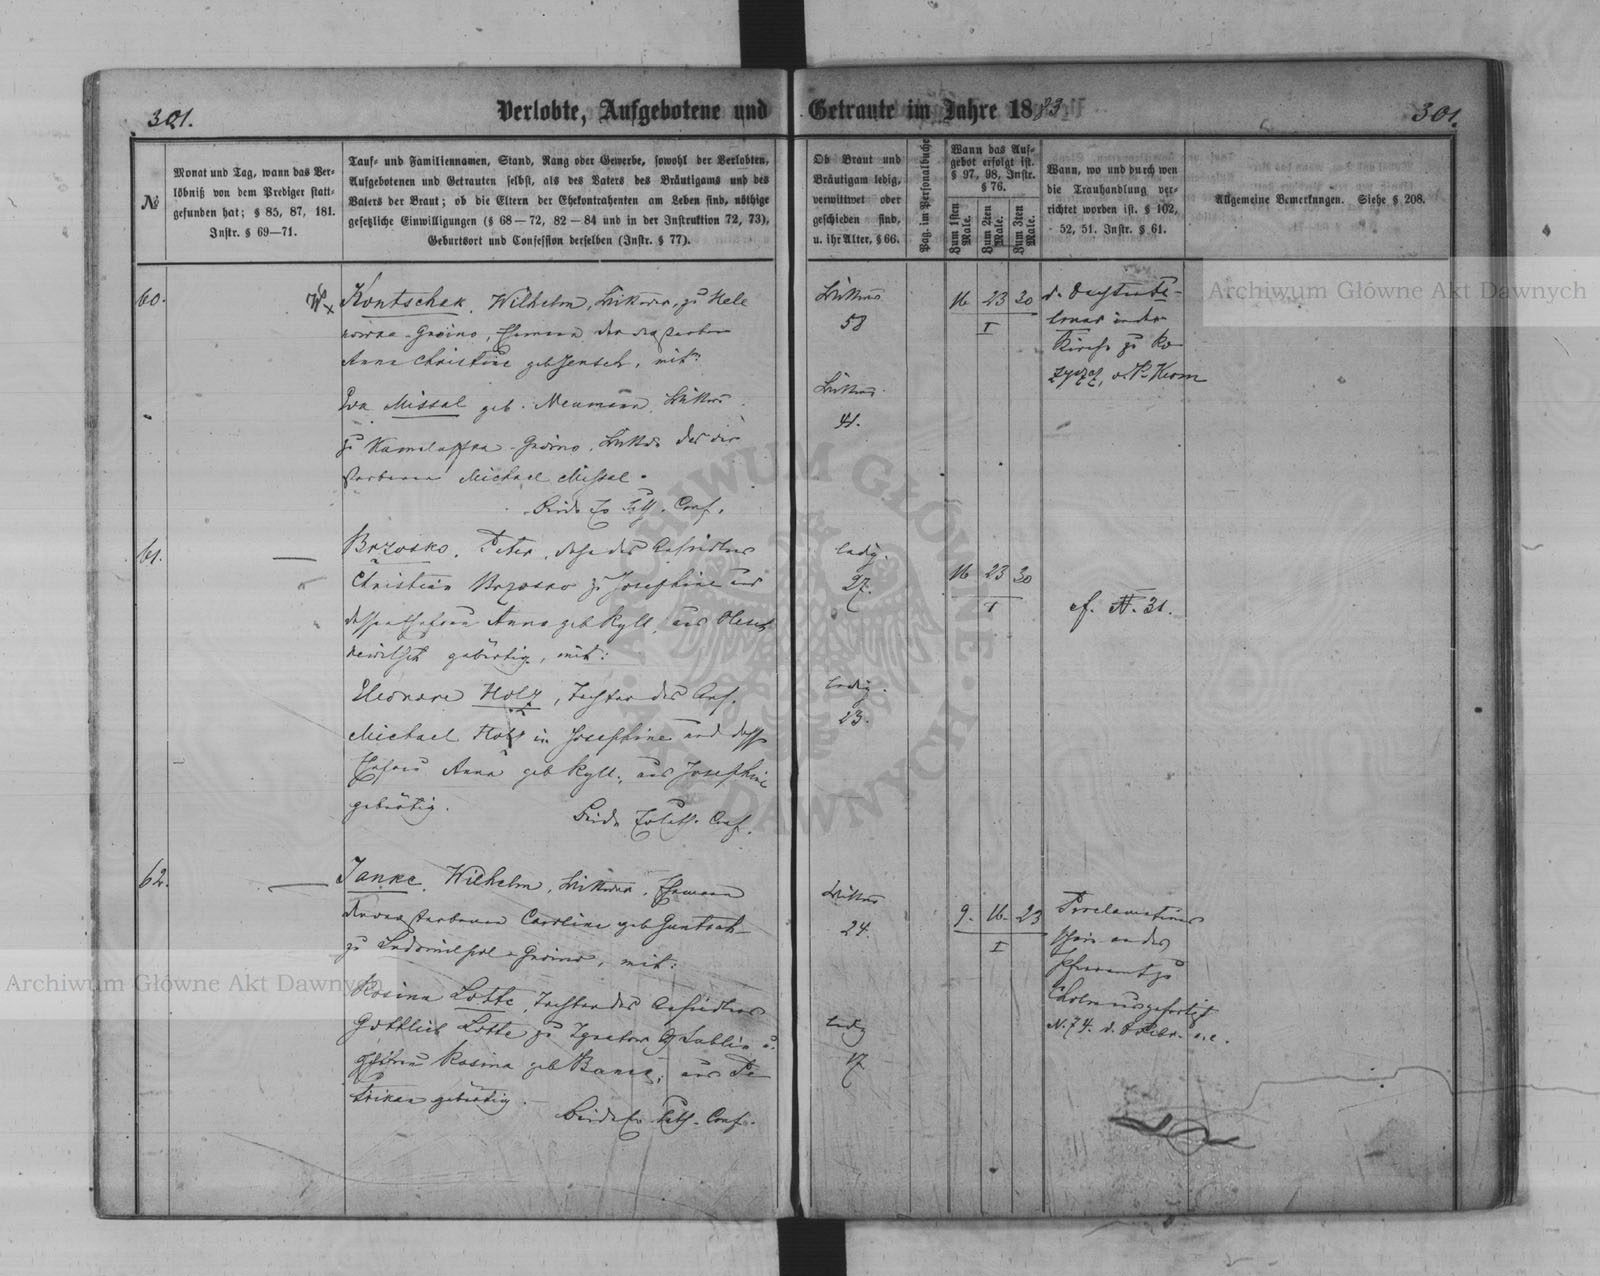 301.
Verlobte, Aufgebotene und Getraute im Jahre 1883
301.
№
Monat und Tag, wann das Ver-
löbniß von dem Prediger statt-
gefunden hat; § 85, 87, 181.
Instr. § 69—71.
Tauf- und Familiennamen, Stand, Rang oder Gewerbe, sowohl der Verlobten,
Aufgebotenen und Getrauten selbst, als des Vaters des Bräutigams und des
Vaters der Braut; ob die Eltern der Ehekontrahenten am Leben sind, nöthige
gesetzliche Einwilligungen (§ 68—72, 82—84 und in der Instruktion 72, 73),
Geburtsort und Confession derselben (Instr. § 77).
Ob Braut und
Bräutigam ledig,
verwittwet oder
geschieden sind,
u. ihr Alter, § 66.
Pag. im Personalbuche
Wann das Auf-
gebot erfolgt ist.
§ 97, 98, Instr.
§ 76.
Zum 1sten Male.
Zum 2ten Male.
Zum 3ten Male.
Wann, wo und durch wen
die Trauhandlung ver-
richtet worden ist. § 102,
52, 51. Instr. § 61.
Allgemeine Bemerkungen. Siehe § 208.
60.
Kontschak, Wilhelm, Wittwer, zu Hele
Ehemann der verstorbenen
Anna Christine geb. Jensch, mit:
Eva Missal geb. Neumann, Wittwe
zu Wittwe des ver
storbenen Michael Missal.
Beide Ev. Luth. Conf.
Wittwer
58
Wittwe
41.
16 23 30
I
Kirche zu Ro
zyszcz, v. P. Kerm
61.
Brzosko, Peter, Sohn des Ansiedlers
Christian Brzosko zu Josephine und
dessen Ehefrau Anna geb. Ryll, aus Olesch
kewitsch gebürtig, mit:
Eleonore Holz, Tochter des Ans.
Michael Holz in Josephine und dess.
Ehefrau Anna geb. Ryll, aus Josephine
gebürtig.
Beide Ev. Luth. Conf.
ledig.
27.
ledig.
23.
16 23 30
I
cf. № 31.
62.
Janke, Wilhelm, Wittwer, Ehemann
der verstorbenen Caroline geb.
zu Ludomilpol mit:
Rosina Lotte, Tochter des Ansiedlers
Gottlieb Lotte zu Ignatow G. Lublin u.
Ehefrau Rosina geb. aus Pe
trikau gebürtig.
Beide Ev. Luth. Conf.
Wittwer
24.
ledig
17
9. 16. 23
I
Proclamations
schein an das
Pfarramt zu
Cholm ausgefertigt
N. 74. d.
Archiwum Główne Akt Dawnych
Archiwum Główne Akt Dawnych
ARCHIWUM GŁÓWNE AKT DAWNYCH